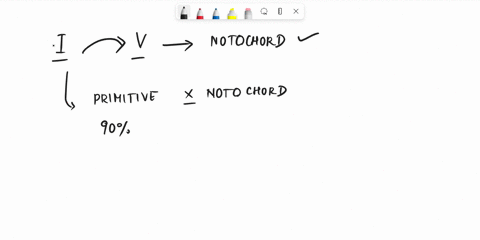 .I V NOTOCHORD
PRIMITIVE X NOTOCHORD
90%